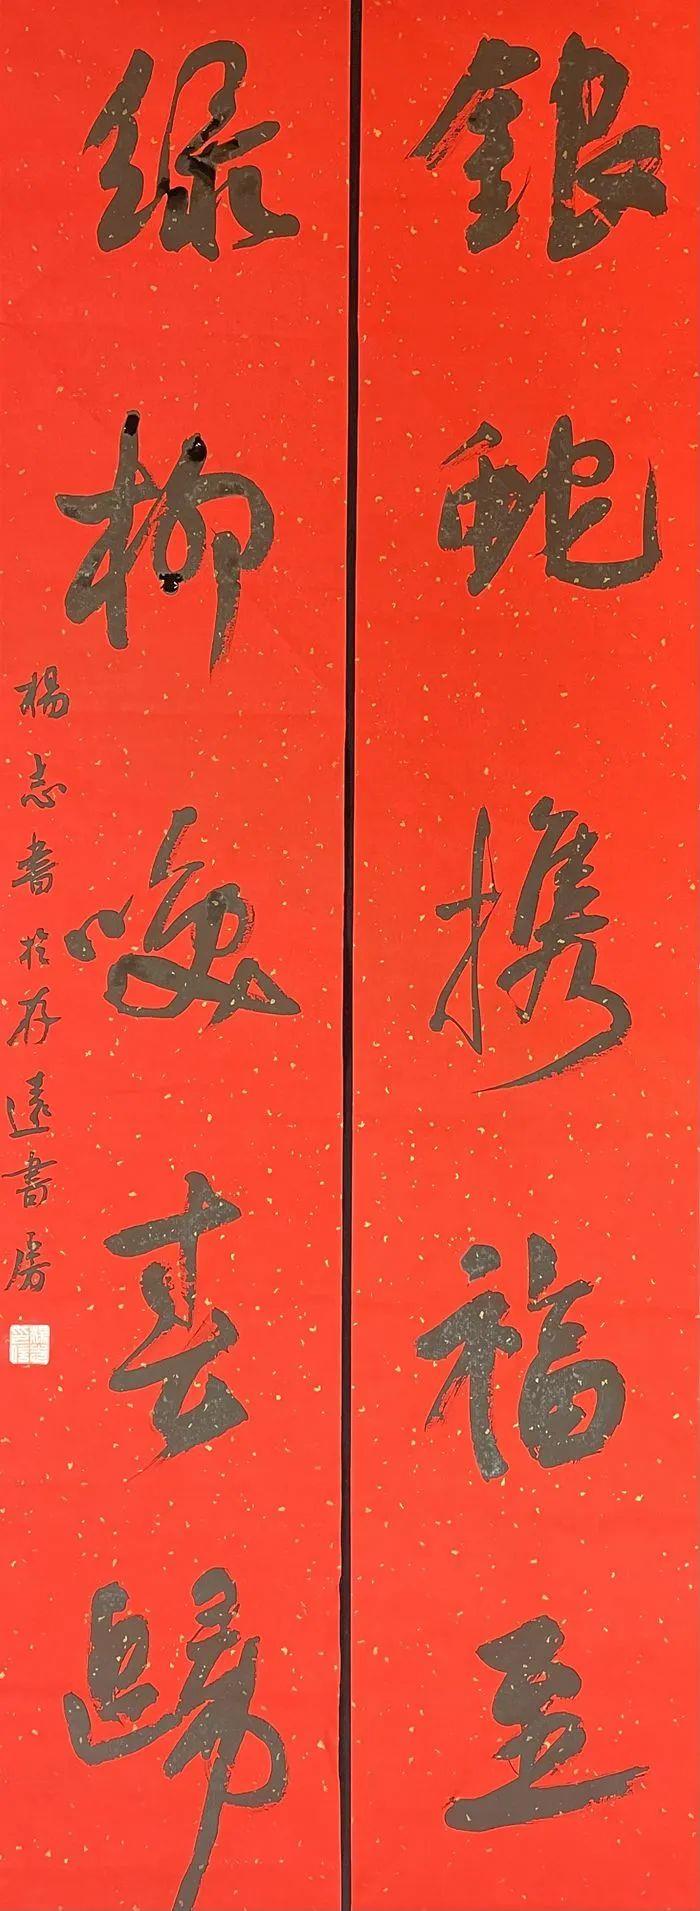 銀蛇携福至
绿柳唤春歸
楊志書於存遠書房